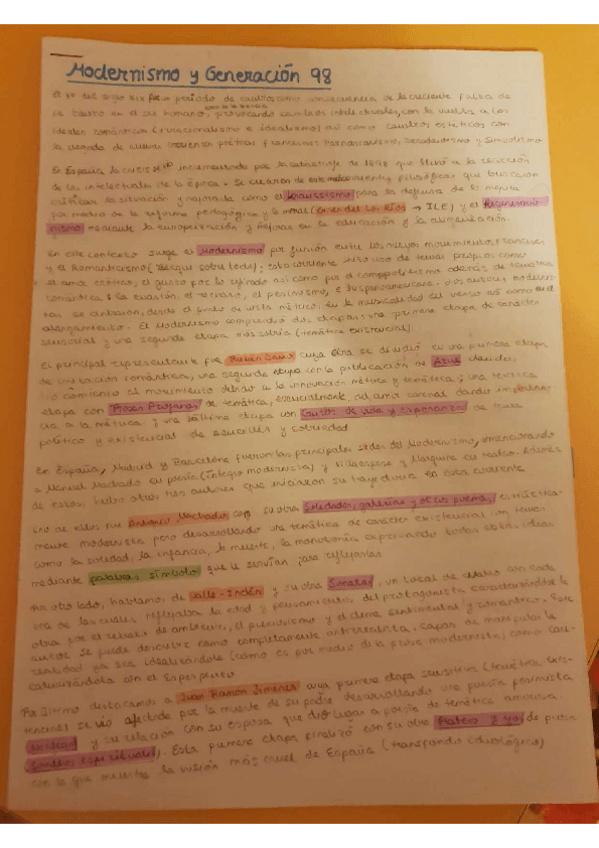 Modernismo y Generación 98
El fin del siglo XIX fue un periodo de consecuencia de la creciente falta de
en el ser humano, provocando cambios intelectuales, con la vuelta a los
ideales románticos (irracionalismo e idealismo) así como cambios estéticos con
la llegada de nuevas poéticas francesas: Parnasianismo, Decadentismo y Simbolismo
En España la crisis se vio incrementada por la de 1898 que llevó a la reacción
de los intelectuales de la época. Se crearon de este modo filosóficas que buscaban
criticar la situación y mejorarla como el Krausismo para la defensa de la mejora
por medio de la reforma pedagógica y la moral (Giner de los Ríos → ILE) y el Regeneracio-
nismo mediante la europeización y mejoras en la educación y la alimentación.
En este contexto surge el Modernismo por fusión entre los nuevos movimientos franceses
y el Romanticismo (Bécquer sobre todo); esta corriente hizo uso de temas propios como
el amor erótico, el gusto por lo refinado así como por el cosmopolitismo además de temática
romántica: la evasión, el rechazo, el pesimismo, e hispanoamericana. Los autores modernis-
tas se centraban, desde el punto de vista métrico, en la musicalidad del verso así como en el
alargamiento. El Modernismo comprendió dos etapas: una primera etapa de carácter
sensorial y una segunda etapa más sobria (temática existencial).
El principal representante fue Rubén Darío cuya obra se dividió en una primera etapa
de imitación romántica, una segunda etapa con la publicación de Azul dando
comienzo al movimiento debido a la innovación métrica y temática; una tercera
etapa con "Prosas Profanas" de temática, esencialmente, del amor carnal dando importan-
cia a la métrica; y una última etapa con Cantos de vida y esperanza de tema
político y existencial de sencillez y sobriedad
En España, Madrid y Barcelona fueron las principales sedes del Modernismo, encontrando
a Manuel Machado en poesía (íntegro modernista) y Villaespesa y Marquina en teatro. Además
de estos, hubo otros tres autores que iniciaron su trayectoria en esta corriente
Uno de ellos fue Antonio Machado con su obra Soledades, galerías y otros poemas,
mente modernista pero desarrollando una temática de carácter existencial con temas
como la soledad, la infancia, la muerte, la monotonía expresando todas estas ideas
mediante palabras símbolo que le servían para reflejarlas
Por otro lado, hablamos de Valle-Inclán y su obra Sonatas, un total de cuatro en cada
una de las cuales reflejaba la edad y pensamiento del protagonista caracterizándose la
obra por el retrato de ambientes, el y el tema sentimental y romántico. Este
autor se puede describir como completamente antirrealista, capaz de manipular la
realidad ya sea idealizándola (como es por medio de la prosa modernista) como cari-
caturizándola con el Esperpento
Por último destacamos a Juan Ramón Jiménez cuya primera etapa sensitiva (temática exis-
tencial) se vio afectada por la muerte de su padre desarrollando una poesía pesimista
y su relación con su esposa que dio lugar a poesía de temática amorosa
(Sonetos espirituales). Esta primera etapa finalizó con su obra Platero y yo, de
con lo que muestra la visión más cruel de España (trasfondo ideológico)